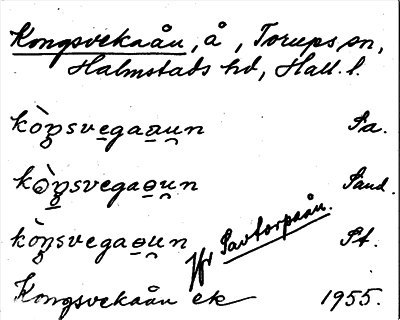 Kongsvekaån, å, Torups sn,
Halmstads hd, Hall. l.
kòŋsvegaa̱u̯n Sa.
kòŋsvegaɵu̯n Sand.
kòŋsvegaɵu̯n St.
Jfr Savtorpaån.
Kongsvekaån ek 1955.